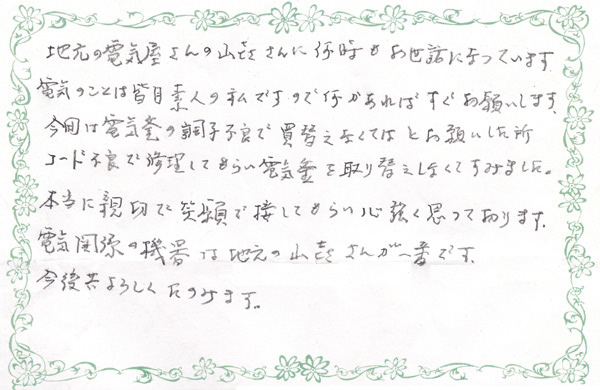 地元の電気屋さんの山㐂さんに何時もお世話になっています。
電気のことは皆目素人の私ですので何かあればすぐお願いします。
今回は電気釜の調子不良で買替えなくてはとお願いした所
コード不良で修理してもらい電気釜を取り替えしなくてすみました。
本当に親切で笑顔で接してもらい心強く思っております。
電気関係の機器は地元の山㐂さんが一番です。
今後共よろしくたのみます。